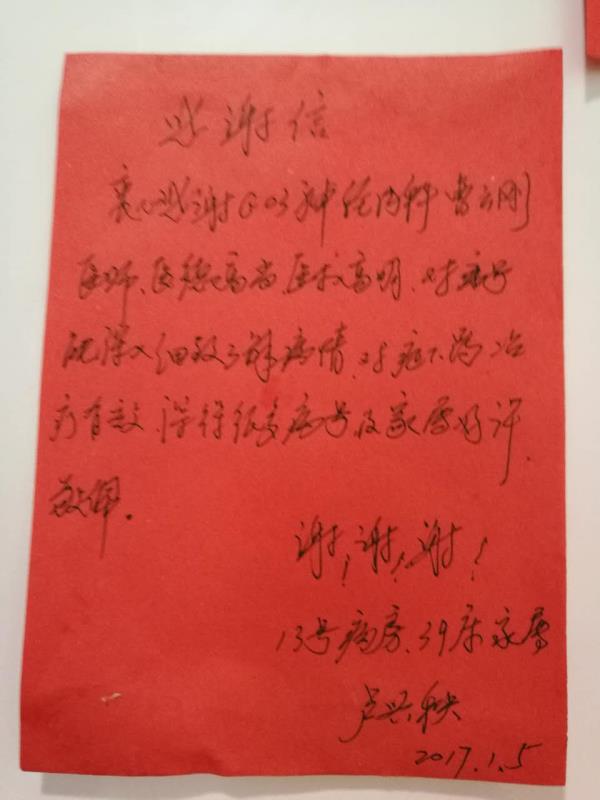 感谢信
衷心感谢G03神经内科曹云刚
医师、医德高尚、医术高明、对病号
能深入细致了解病情、对症下药、治
疗有效、深得很多病号及家属好评、
敬佩。
谢！谢！谢！
13号病房、39床家属
卢兴秧
2017.1.5